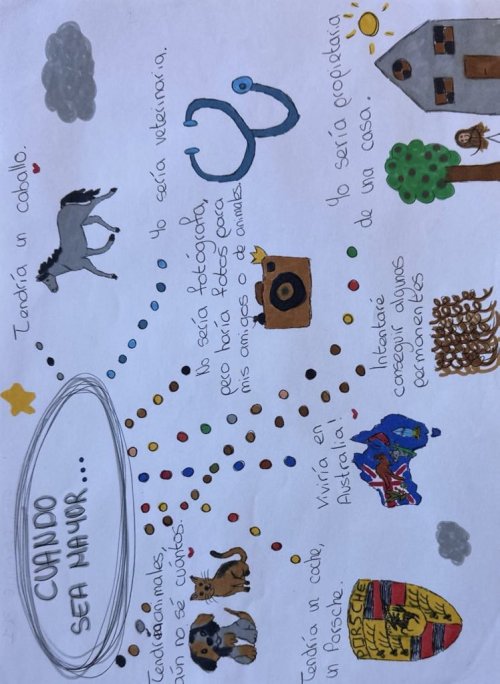 CUANDO
SEA MAYOR...
Tendría un caballo.
Tendría animales,
aún no sé cuántos.
Yo sería veterinaria.
No sería fotógrafa,
pero haría fotos para
mis amigos o de animales.
Tendría un coche,
un Porsche.
PORSCHE
Viviría en
Australia!
Intentaré
conseguir algunas
permanentes
Yo sería propietaria
de una casa.